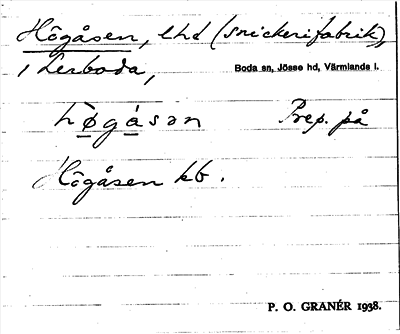 Högåsen, lhd (snickerifabrik),
i Lerboda, Boda sn, Jösse hd, Värmlands l.
hø̀gåsən Prep. på
Högåsen kb.
P. O. GRANÉR 1938.